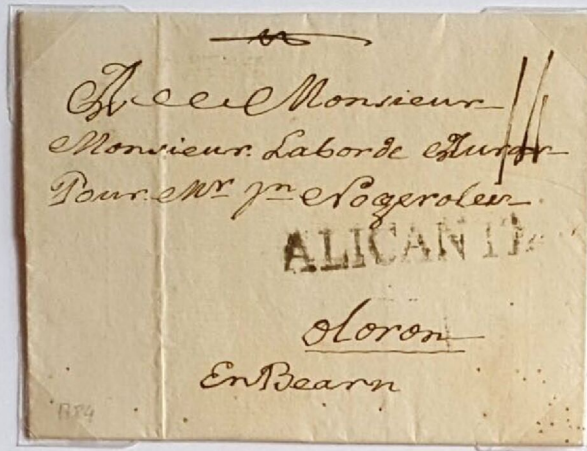 A Monsieur
Monsieur Laborde
Pour Mr Jn Nogeroles
ALICANTE
oloron
En Bearn